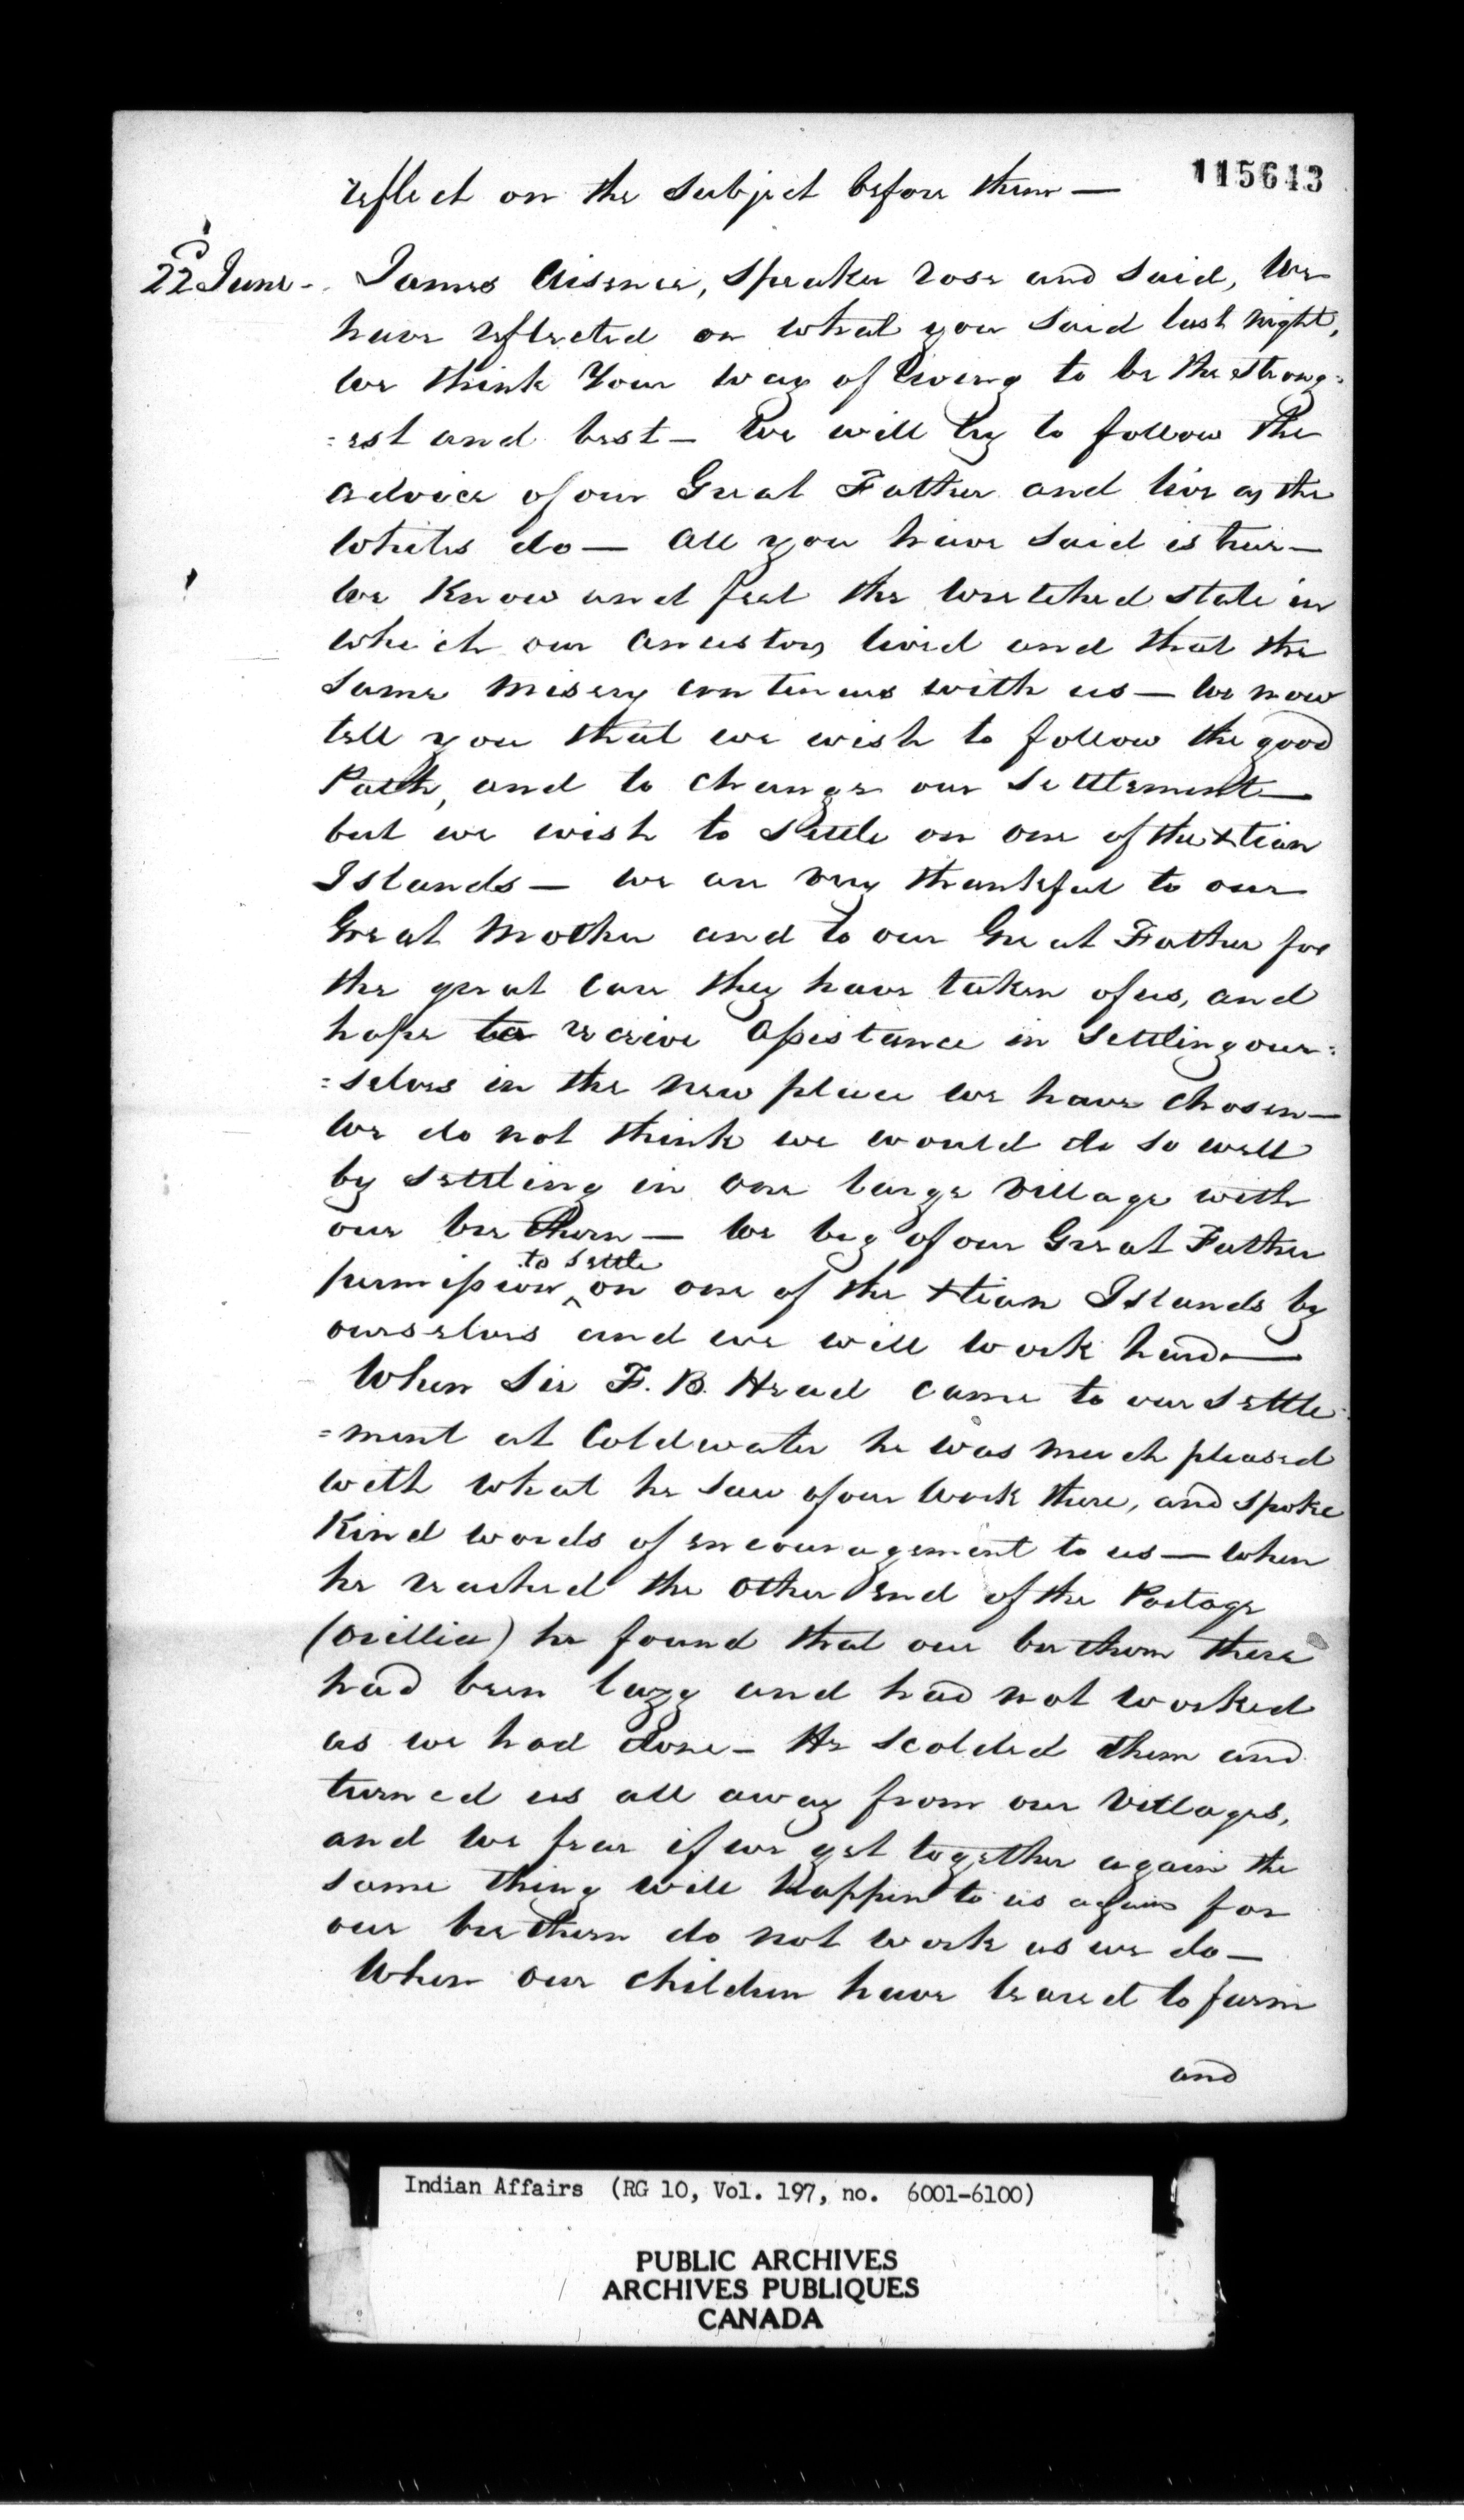 115643
reflect on the subject before them —
22 June - James Aisence, Speaker rose and said, We
have reflected on what you said last night,
We think Your way of living to be the strong=
=est and best — We will try to follow the
advice of our Great Father and live as the
Whites do — All you have said is true —
We Know and feel the wretched state in
which our ancestors lived and that the
same misery continues with us — We now
tell you that we wish to follow the good
Path, and to change our Settlement —
but we wish to settle on one of the Xtian
Islands — We are very thankful to our
Great Mother and to our Great Father for
the great care they have taken of us, and
hope to receive Assistance in settling our=
=selves in the new place we have chosen —
We do not think we would do so well
by settling in one large village with
our brethern — We beg of our Great Father
permission ^to settle on one of the Xtian Islands by
ourselves and we will work hard —
When Sir F. B. Head came to our Settle=
=ment at Coldwater he was much pleased
with what he saw of our work there, and spoke
Kind words of encouragement to us — When
he reached the other End of the Portage
(Orillia) he found that our brethern there
had been lazy and had not worked
as we had done — He scolded them and
turned us all away from our Villages,
and we fear if we get together again the
same thing will happen to us again for
our brethern do not work as we do —
When our children have leared to farm
and
Indian Affairs (RG 10, Vol. 197, no. 6001-6100)
PUBLIC ARCHIVES
ARCHIVES PUBLIQUES
CANADA